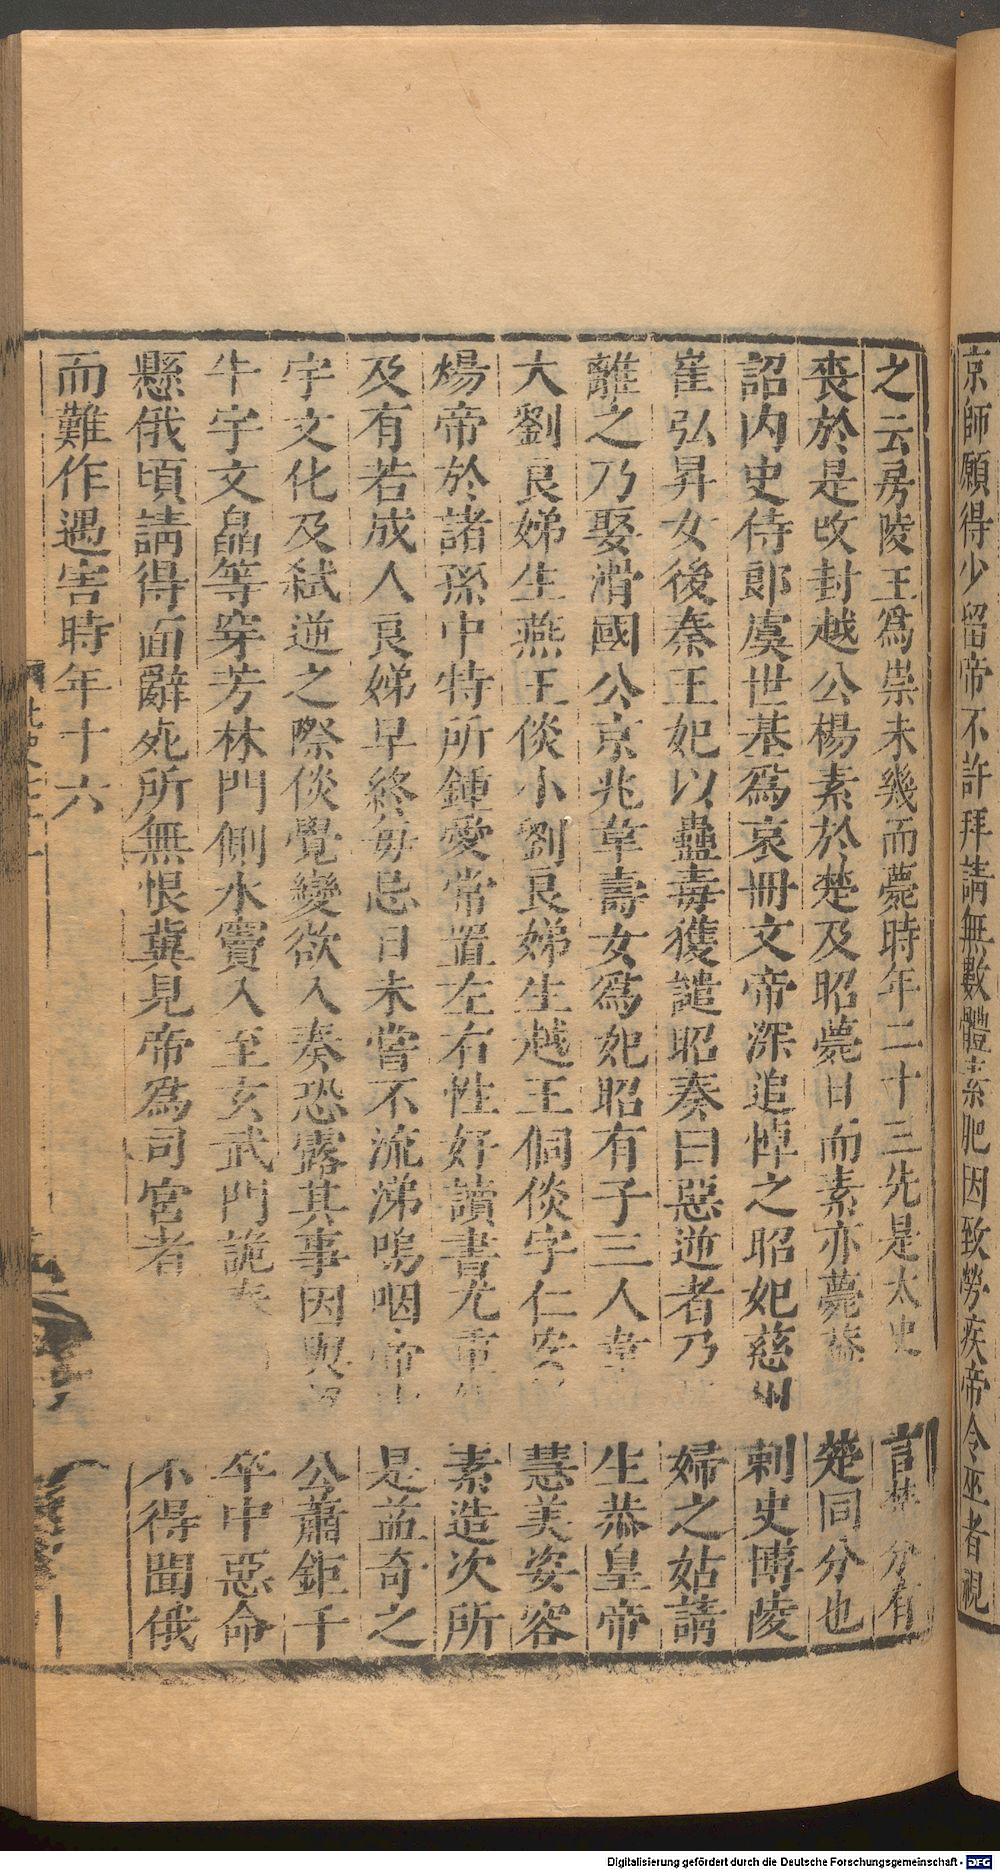 京師願得少留帝不許拜請無數體素肥因致勞疾帝令巫者視
之云房陵王爲祟未幾而薨時年二十三先是太史言楚分有
喪於是改封越公楊素於楚及昭薨日而素亦薨蓋楚同分也
詔內史侍郎虞世基爲哀冊文帝深追悼之昭妃慈州刺史博陵
崔弘昇女後秦王妃以蠱毒獲譴昭奏曰惡逆者乃婦之姑請
離之乃娶滑國公京兆韋壽女爲妃昭有子三人韋生恭皇帝
大劉良娣生燕王倓小劉良娣生越王侗倓字仁安慧美姿容
煬帝於諸孫中特所鍾愛常置左右性好讀書尤重素造次所
及有若成人良娣早終每忌日未嘗不流涕嗚咽帝是益奇之
宇文化及弒逆之際倓覺變欲入奏恐露其事因與公蕭鉅千
牛宇文皛等穿芳林門側水竇入至玄武門詭奏卒中惡命
懸俄頃請得面辭死所無恨冀見帝爲司宮者不得聞俄
而難作遇害時年十六
Digitalisierung gefördert durch die Deutsche Forschungsgemeinschaft - DFG